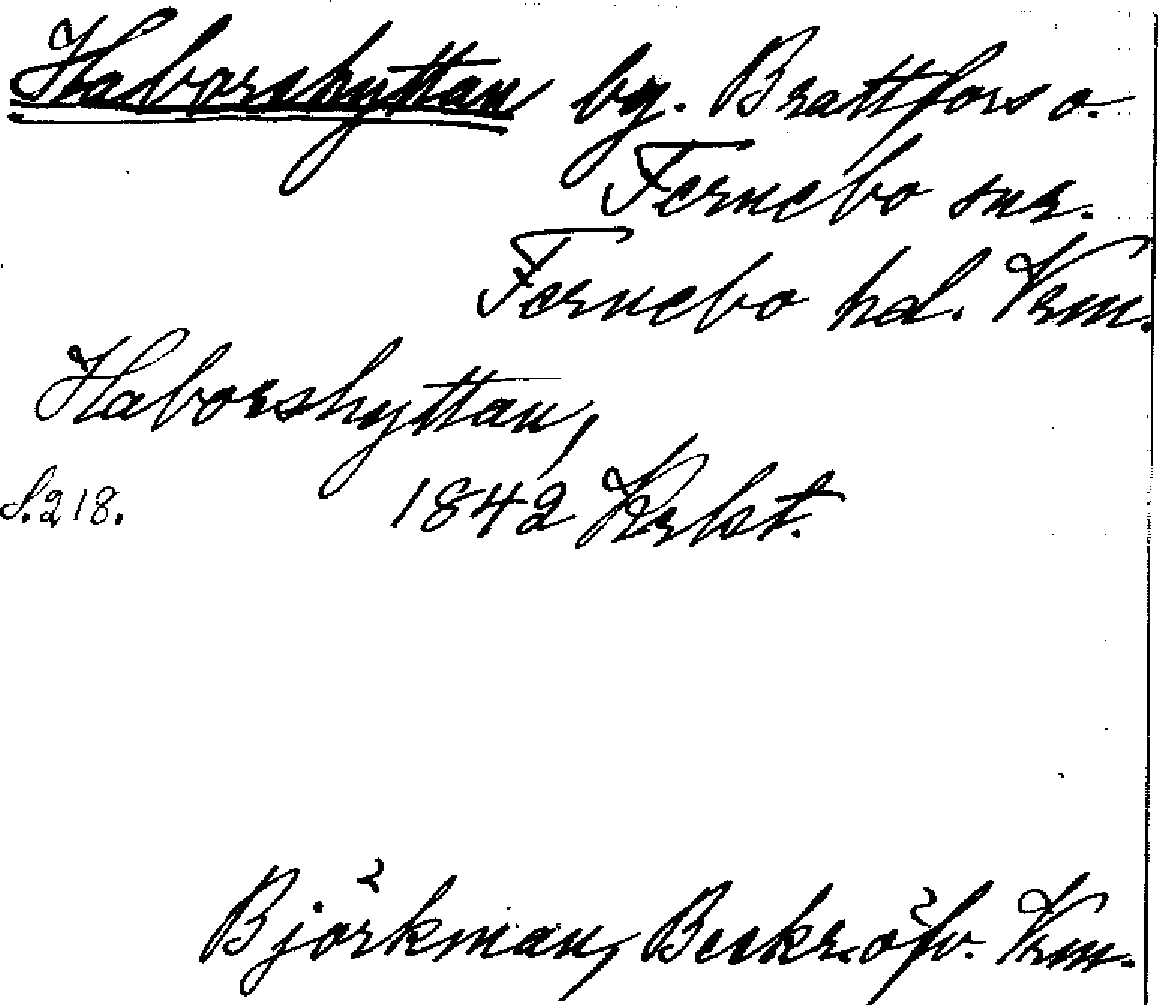 Haborshyttan by. Brattfors o.
Fernebo snr.
Fernebo hd. Vrm.
Haborshyttan,
S. 218. 1842 Krbt.
Björkman, Beskr. öfv. Vrm.